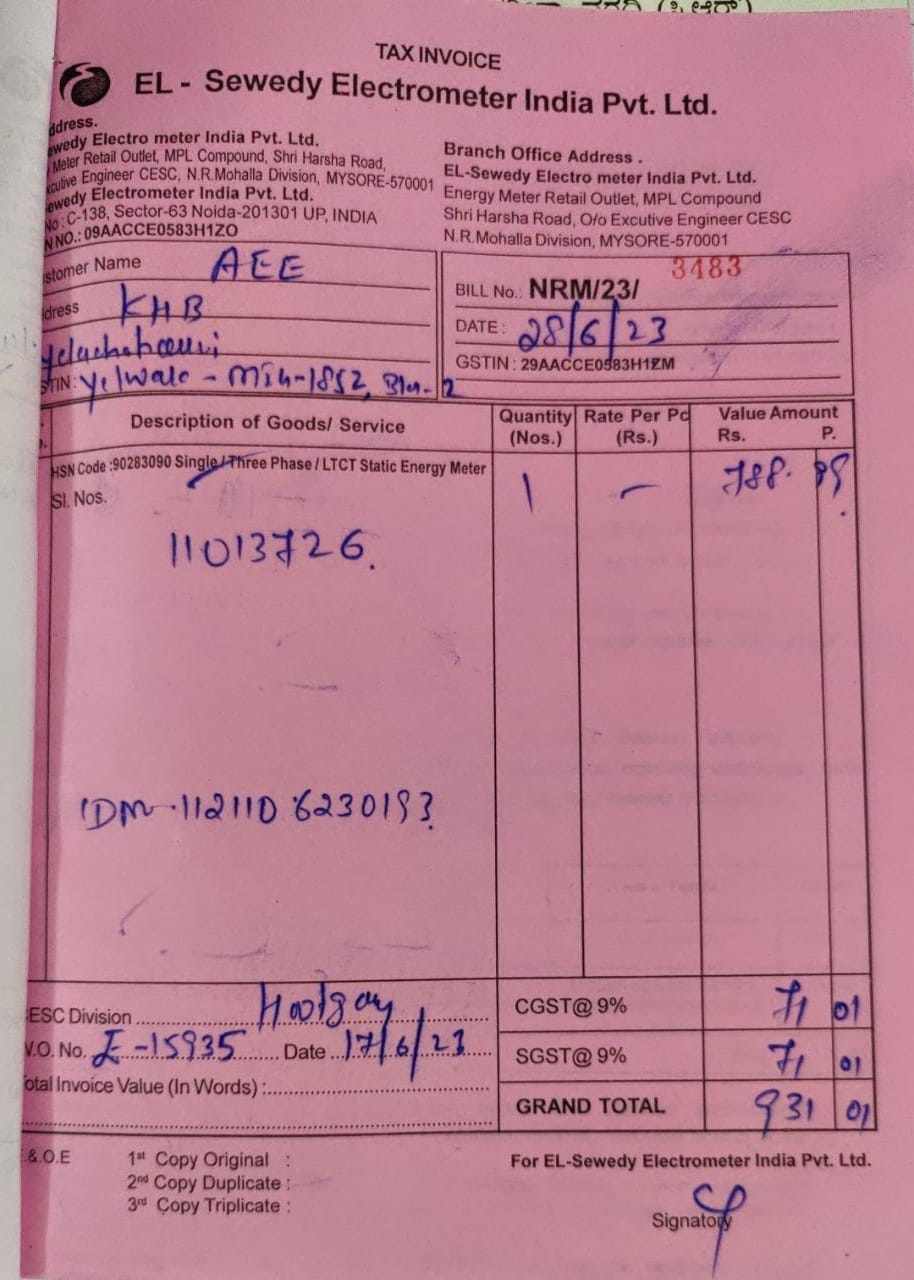 TAX INVOICE
EL - Sewedy Electrometer India Pvt. Ltd.
ddress.
ewedy Electro meter India Pvt. Ltd.
Meter Retail Outlet, MPL Compound, Shri Harsha Road,
xcutive Engineer CESC, N.R.Mohalla Division, MYSORE-570001
ewedy Electrometer India Pvt. Ltd.
No : C-138, Sector-63 Noida-201301 UP, INDIA
N NO.: 09AACCE0583H1ZO
Branch Office Address .
EL-Sewedy Electro meter India Pvt. Ltd.
Energy Meter Retail Outlet, MPL Compound
Shri Harsha Road, O/o Excutive Engineer CESC
N.R.Mohalla Division, MYSORE-570001
stomer Name AEE
dress KHB
STIN: Yelwale - Min-1852, 
3483
BILL No.: NRM/23/
DATE : 28/6/23
GSTIN : 29AACCE0583H1ZM
Description of Goods/ Service Quantity (Nos.) Rate Per Pc (Rs.) Value Amount Rs. P.
HSN Code :90283090 Single / Three Phase / LTCT Static Energy Meter 1 - 788.
Sl. Nos.
11013726.
112110 6230193
ESC Division
V.O. No. E-15935 Date 17/6/23
otal Invoice Value (In Words) :
CGST@ 9% 71 01
SGST@ 9% 71 01
GRAND TOTAL 931 01
.&.O.E
1st Copy Original :
2nd Copy Duplicate :
3rd Copy Triplicate :
For EL-Sewedy Electrometer India Pvt. Ltd.
Signatory